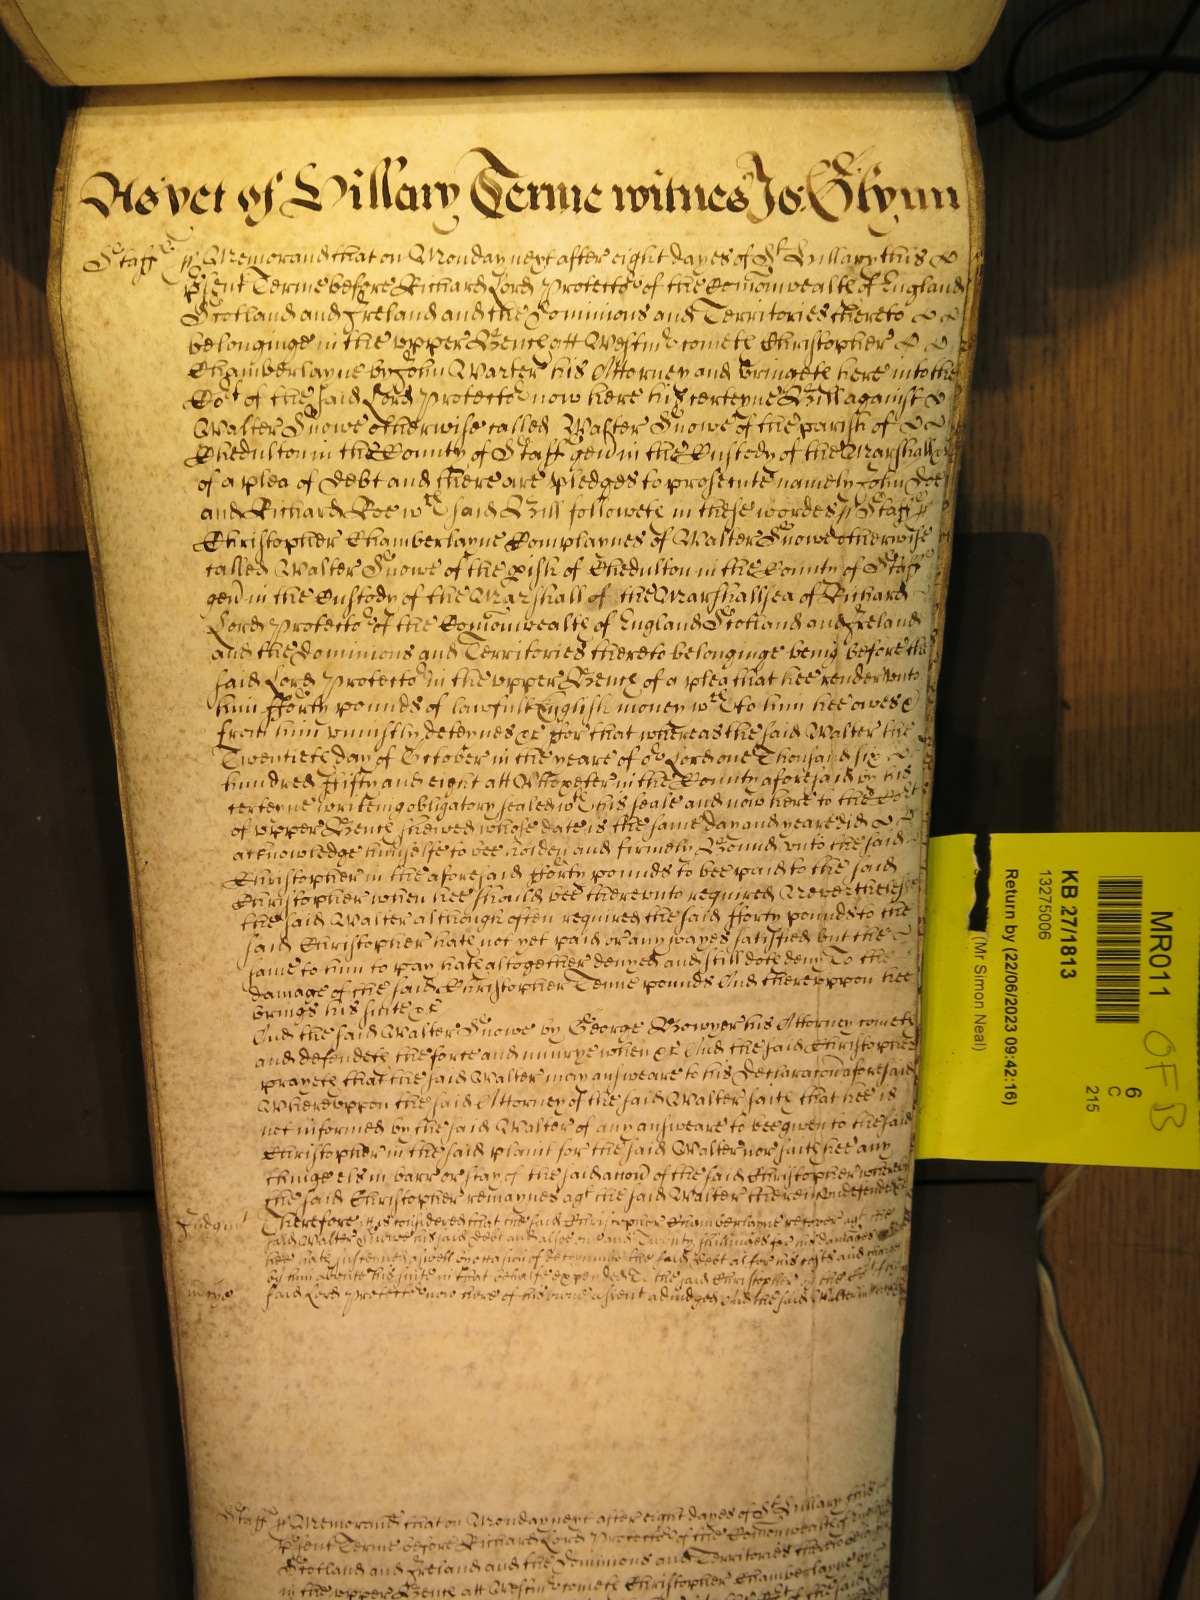 As yet of Hillary Terme witnes Jo: Glynn
Staff ss Memorand that on Monday next after eight dayes of St Hillary this
psent Terme before Richard Lord Protector of the Comonwealth of England
Scotland and Ireland and the Dominions and Territories thereto
belonginge in the upper Bench att Westmr cometh Christopher
Chamberlayne by John Warter his Attorney and bringeth here into the
Cort of the said Lord Protector now here his certeyne Bill against
Walter Snowe otherwise called Walter Snowe of the parish of
Chedulton in the County of Staff gen in the Custody of the Marshall &c
of a plea of debt and there are pledges to prosecute namely John Doe
and Richard Roe wch said Bill followeth in these wordes ss Staff ss
Christopher Chamberlayne Complaynes of Walter Snowe otherwise
called Walter Snowe of the pish of Chedulton in the County of Staff
gen in the Custody of the Marshall of the Marshallsea of Richard
Lord Protector of the Comonwealth of England Scotland and Ireland
and the Dominions and Territories thereto belonginge being before the
said Lord Protector in the upper Bench of a plea that hee render unto
him fforty pounds of lawfull English money wch to him hee owes &
from him uniustly deteynes &c ffor that whereas the said Walter the
Twentieth day of October in the yeare of or Lord one Thousand six
hundred ffifty and eight att in the County aforesaid by his
certeyne writeing obligatory sealed wth his seale and now here to the Cort
of upper Bench shewed whose date is the same day and yeare did
acknowledge himselfe to bee holden and firmely Bound unto the said
Christopher in the aforesaid fforty pounds to bee paid to the said
Christopher when hee should bee thereunto required Neverthelesse
the said Walter although often required the said fforty pounds to the
said Christopher hath not yet paid or any wayes satisfied but the
same to him to pay hath altogether denyed and still doth deny To the
damage of the said Christopher Tenne pounds And thereuppon hee
brings his suite &c
And the said Walter Snowe by George Bowyer his Attorney cometh
and defendeth the force and iniurye when &c And the said Christopher
prayeth that the said Walter may answeare to his Declaration aforesaid
Whereuppon the said Attorney of the said Walter saith that hee is
not informed by the said Walter of any answeare to bee given to the said
Christopher in the said plaint for the said Walter nor saith hee any
thinge els in barr or stay of the said action of the said Christopher whereby
the said Christopher remaynes agt the said Walter therein undefended
Judgmt Therefore it is considered that the said Christopher Chamberlayne recover agt the
said Walter Snowe his said debt and alsoe one and Twenty shillinges for his damages
hee hath susteyned aswell by occasion of deteyninge the said debt as for his costs and charges
by him aboute his suite in that behalfe expended To the said Christopher by the Cort of the
mcye said Lord Protector now here of his owne assent adiudged And the said Walter in mercy
Staff ss Memorand that on Monday next after eight dayes of St Hillary this
psent Terme before Richard Lord Protector of the Comonwealth of England
Scotland and Ireland and the Dominions and Territories thereto belonginge
in the upper Bench att Westmr cometh Christopher Chamberlayne by
of the said
MR011
OFB
6
C
215
KB 27/1813
13275006
Return by (22/06/2023 09:42:16)
(Mr Simon Neal)